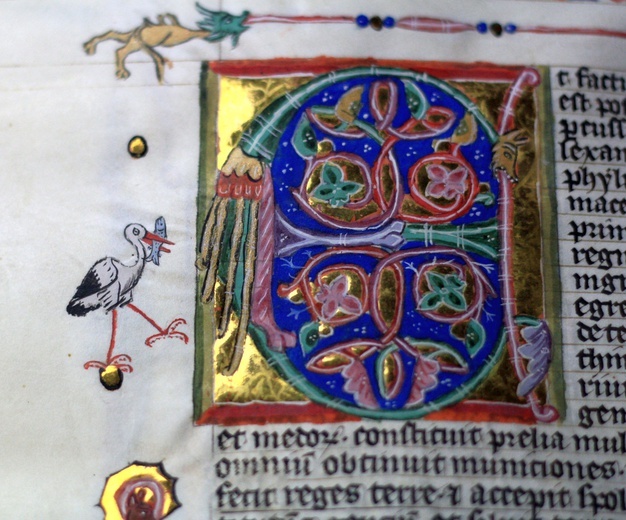 E
t factu
est pot
pcuss
lexan
phyli
mace
prim
regn
ingr
egre
de te
thim
riuit
gen
et medoꝝ· constituit prelia mul
omniū obtinuit munitiones·
fecit reges terre· ⁊ accepit spol